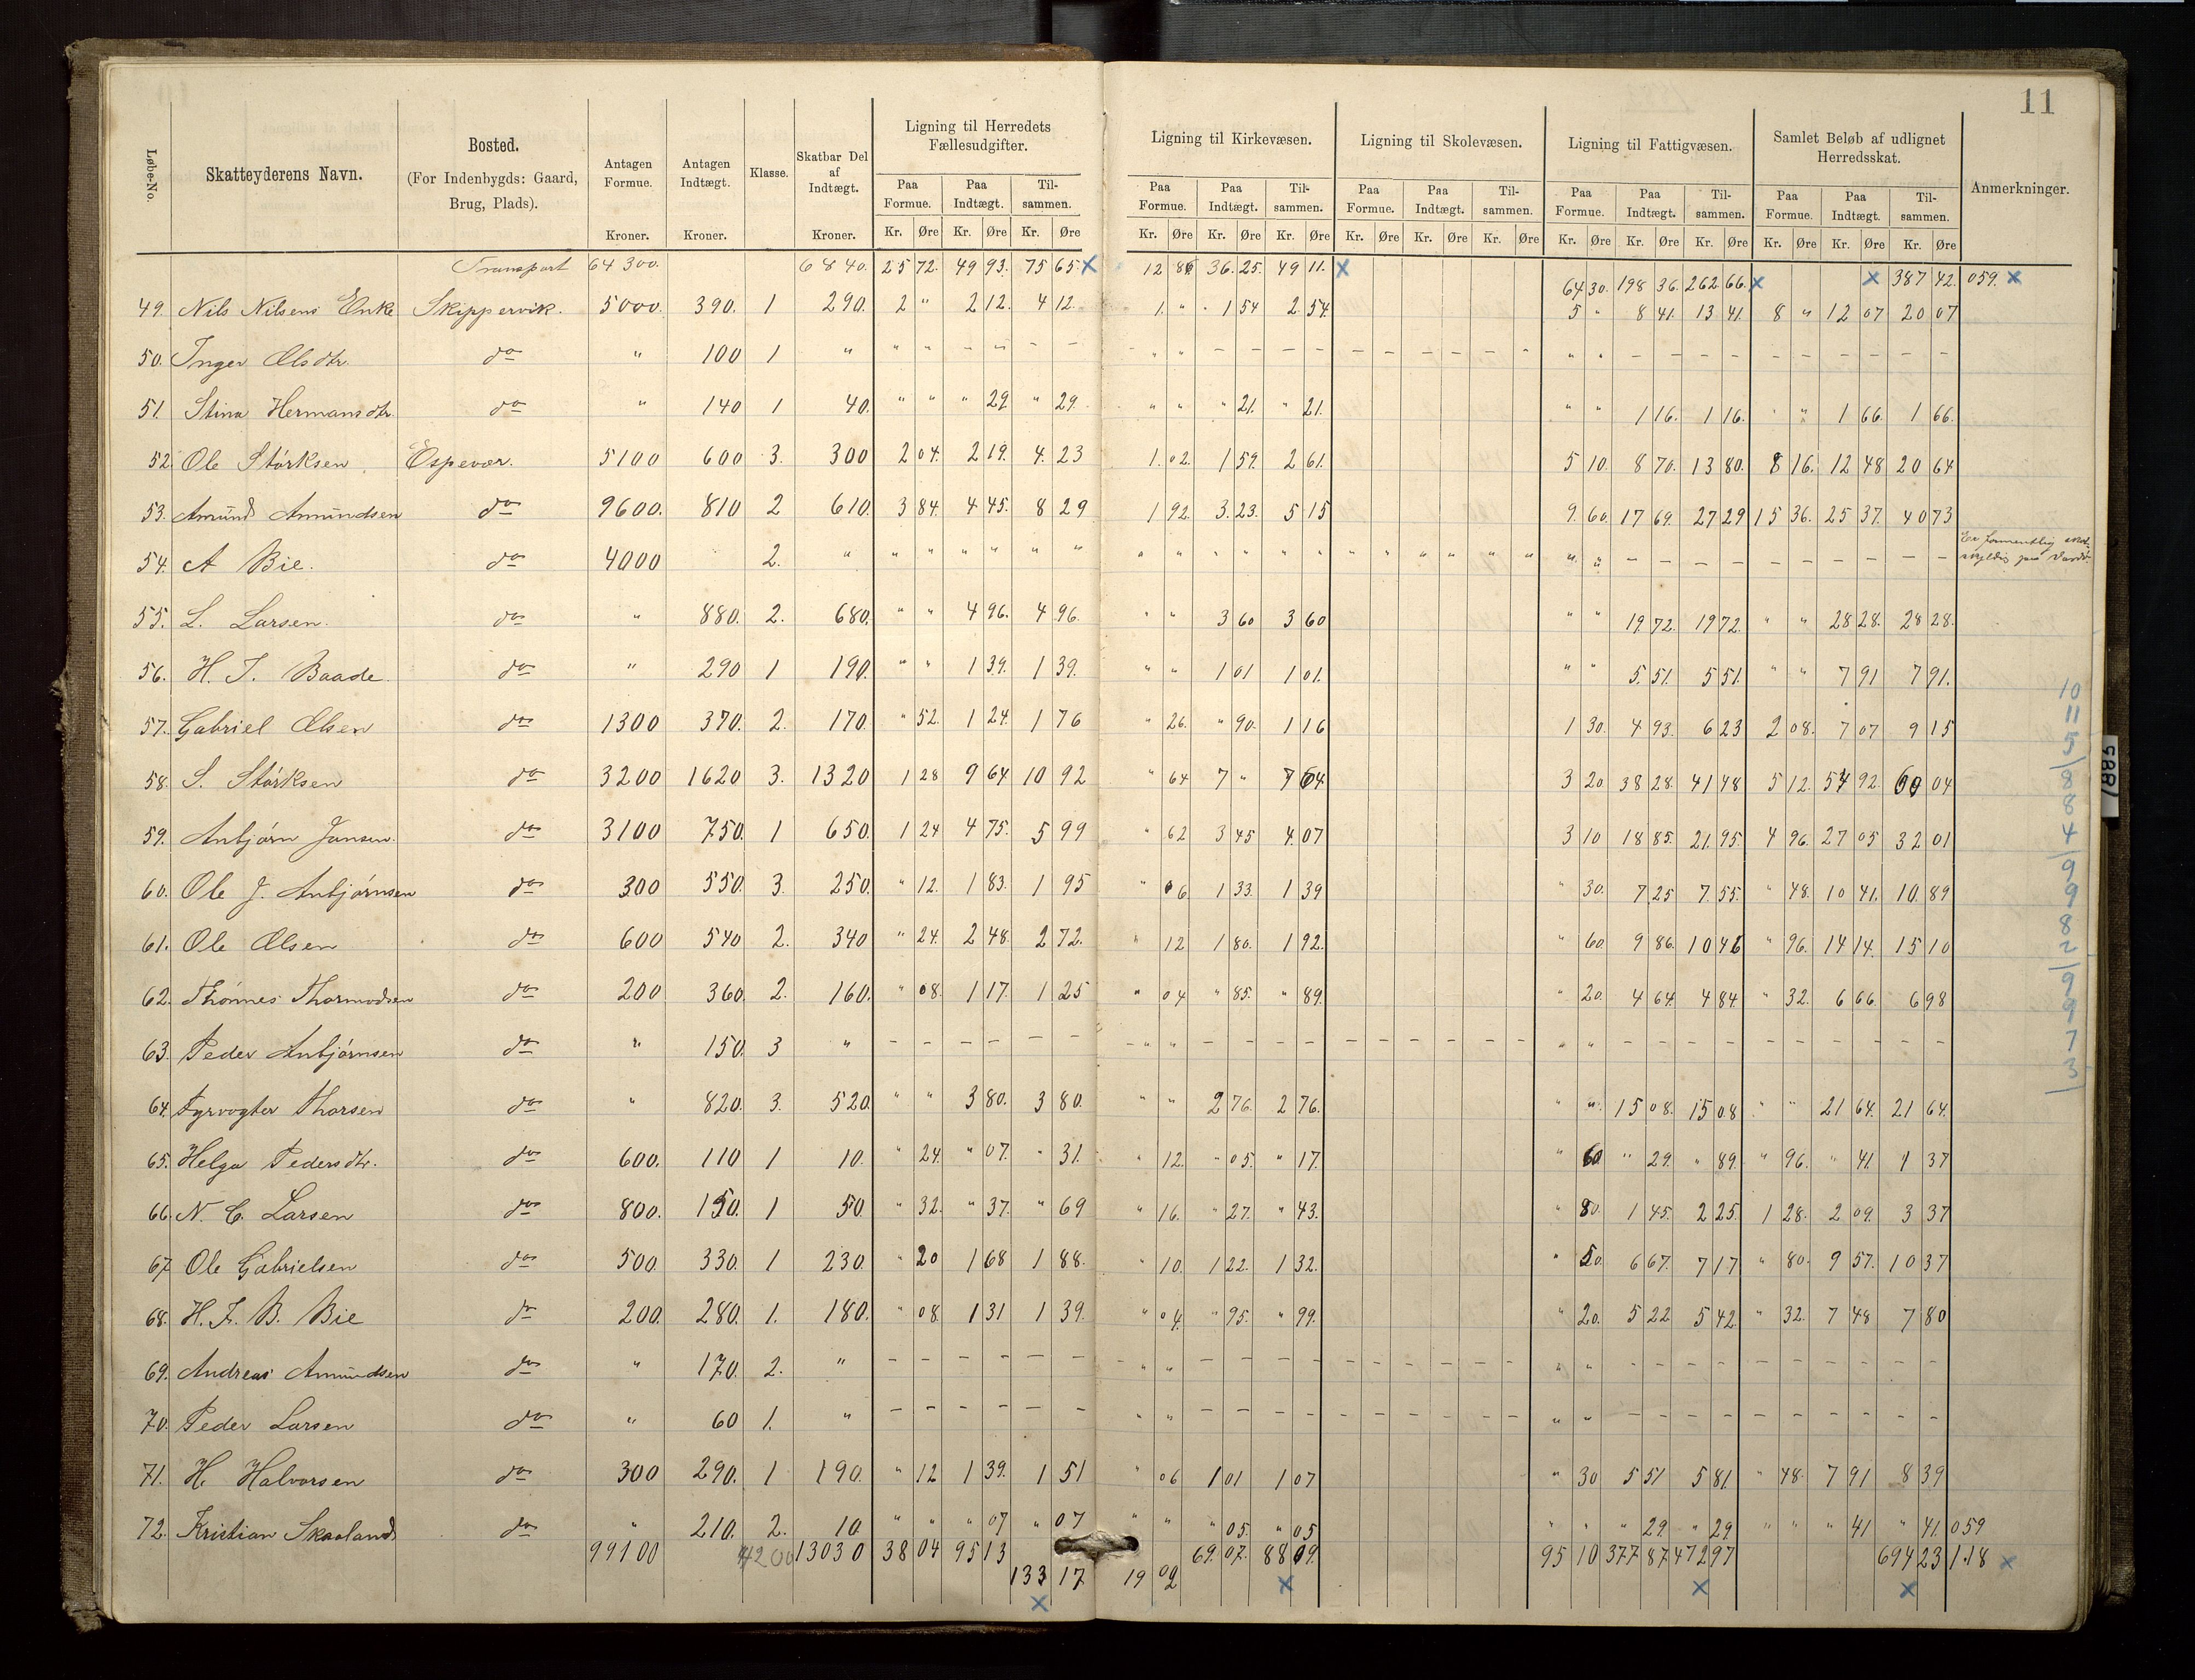 11
Løbe-No. Skatteyderens Navn. Bosted. (For Indenbygds: Gaard, Brug, Plads). Antagen Formue. Kroner. Antagen Indtægt. Kroner. Klasse. Skatbar Del af Indtægt. Kroner. Ligning til Herredets Fællesudgifter. Ligning til Kirkevæsen. Ligning til Skolevæsen. Ligning til Fattigvæsen. Samlet Beløb af udlignet Herredsskat. Anmerkninger.
Paa Formue. Paa Indtægt. Til-sammen. Paa Formue. Paa Indtægt. Til-sammen. Paa Formue. Paa Indtægt. Til-sammen. Paa Formue. Paa Indtægt. Til-sammen. Paa Formue. Paa Indtægt. Til-sammen.
Kr. Øre Kr. Øre Kr. Øre Kr. Øre Kr. Øre Kr. Øre Kr. Øre Kr. Øre Kr. Øre Kr. Øre Kr. Øre Kr. Øre Kr. Øre Kr. Øre Kr. Øre
Transport 64300. 6840. 25 72. 49 93. 75 65 x 12 86 36. 25. 49 11. x 64 30. 198 36. 262 66. x x 387 42. 059. x
49. Nils Nilsens Enke Skippervik. 5000. 390. 1 290. 2 " 2 12. 4 12. 1. " 1 54 2. 54. 5 " 8 41. 13 41. 8 " 12 07 20 07
50. Inger Olsdtr. do " 100 1 " " " - " - - " " - - - - - - - - - - " " - - - - - - - - - -
51. Stina Hermansdtr. do " 140 1 40. " " " 29 " 29. " " " 21. " 21. " " 1 16. 1 16. " " 1 66. 1 66.
52. Ole Størksen Espevær. 5100 600 3. 300 2 04. 2 19. 4. 23 1. 02. 1 59. 2 61. 5 10. 8 70. 13 80. 8 16. 12 48 20 64
53. Amund Amundsen do 9600. 810 2 610. 3 84. 4 45. 8 29 1 92. 3. 23. 5 15 9. 60. 17 69. 27 29 15 36. 25 37. 40 73
54. A Bie. do 4000 2. " " " " " " " " " " " " " " " " " " " " " - - - - - - - - - - Er formentlig
55. L. Larsen. do " 880. 2. 680. " " 4 96. 4 96. " " 3 60 3 60 " " 19. 72. 19 72. " " 28 28. 28 28.
56. H. J. Baade. do " 290 1 190. " " 1 39. 1 39. " " 1 01 1 01. " " 5. 51. 5 51. " " 7 91 7 91.
57. Gabriel Olsen do 1300 370. 2. 170. " 52. 1 24. 1 76 " 26. " 90. 1 16 1 30. 4 93. 6 23 2 08. 7 07 9 15
58. S. Størksen do 3200 1620 3. 1320 1 28 9 64 10 92 " 64 7 " 7 64 3 20. 38 28. 41 48 5 12. 54 92. 60 04
59. Anbjørn Jansen. do 3100 750. 1 650. 1 24 4 75. 5 99 " 62 3 45 4. 07 3 10 18 85. 21. 95. 4 96. 27 05 32 01
60. Ole J. Anbjørnsen do 300 550. 3. 250. " 12. 1 83. 1 95 " 06 1 33. 1 39 " 30. 7 25 7. 55. " 48. 10 41. 10. 89
61. Ole Olsen do 600 540 2. 340 " 24. 2 48. 2 72. " 12 1 80. 1 92. " 60. 9 86. 10 46 " 96. 14 14. 15 10
62. Thønnes Thormodsen do 200 360. 2. 160. " 08. 1 17. 1 25 " 04 " 85. " 89. " 20. 4 64. 4 84. " 32. 6 66. 6 98
63. Peder Anbjørnsen do " 150. 3 " - - - - - - - " " - - - - - - - - - - " " - - - - - - - - - -
64. Fyrvogter Thorsen do " 820. 3. 520. " " 3 80. 3 80. " " 2 76. 2 76. " " 15 08. 15 08 " " 21 64. 21 64.
65. Helga Pedersdtr. do 600. 110 1 10. " 24. " 07. " 31. " 12. " 05. " 17. " 60 " 29. " 89. " 96. " 41. 1 37
66. N. C. Larsen do 800. 150. 1 50. " 32. " 37. " 69 " 16. " 27. " 43. " 80. 1 45. 2 25. 1 28. 2 09. 3 37
67 Ole Gabrielsen do 500. 330. 1 230. " 20 1 68 1 88. " 10. 1 22. 1 32. " 50. 6 67. 7 17 " 80. 9 57. 10 37
68. H. F. B. Bie do 200. 280. 1. 180. " 08. 1 31 1 39. " 04. " 95. " 99. " 20. 5 22 5 42. " 32. 7 48 7 80
69. Andreas Amundsen do " 170. 2. " - - - - - - - " " - - - - - - - - - - " " - - - - - - - - - -
70. Peder Larsen do " 60 1. " - - - - - - " " - - - - - - - - - - " " - - - - - - - - - -
71. H. Halvorsen do 300 290. 1 190. " 12 1 39. 1 51 " 06 1 01 1 07 " 30 5 51 5 81. " 48. 7 91 8 39
72. Kristian Skaaland do " 210. 2. 10 " " " 07 " 07 " " " 05. " 05 " " " 29. " 29 " " " 41 " 41. 059
99100 4200 13030 38 04 95 13 133 17 x 19 02 69. 07. 88 09. x 95 10 377 87 472 97 x 694 23 1.18 x
10
11
5
8
8
4
9
9
8
2
9
9
7
3
1885